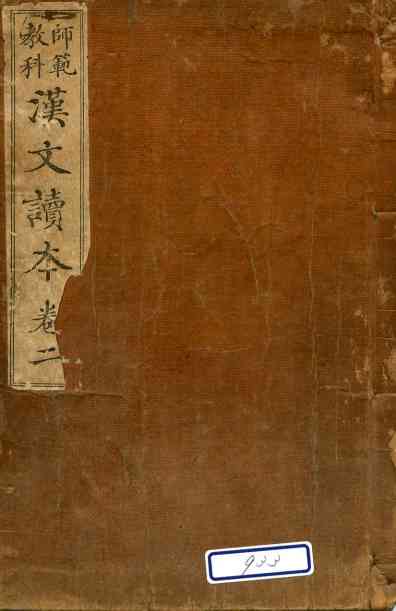 師範
教科
漢文讀本卷二